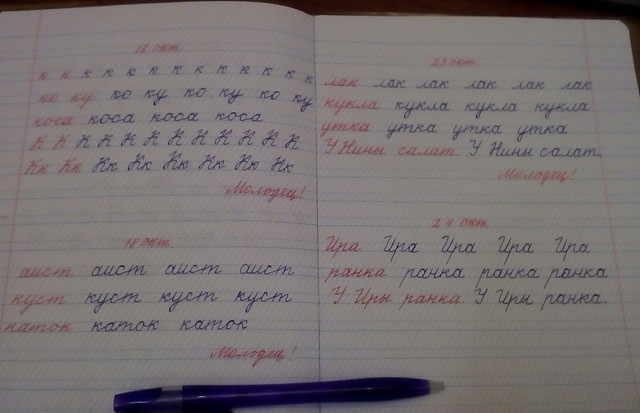 16 окт.
к к к к к к к к к к к к к
ко ку ко ку ко ку ко ку
коса коса коса коса
К К К К К К К К К К К К
Кк Кк Кк Кк Кк Кк Кк Кк
Молодец!
18 окт.
аист аист аист аист
куст куст куст куст
каток каток каток
Молодец!
23 окт.
лак лак лак лак лак лак
кукла кукла кукла кукла
утка утка утка утка
У Нины салат. У Нины салат.
Молодец!
24 окт.
Ира Ира Ира Ира Ира
ранка ранка ранка ранка
У Иры ранка. У Иры ранка.